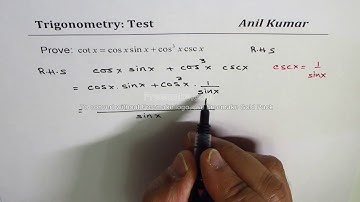 Trigonometry: Test Anil Kumar
Prove: cot x = cos x sin x + cos³ x csc x R.H.S
R.H.S cosx sinx + cos³x cscx cscx = 1/sinx
= cosx . sinx + cos³x . 1/sinx
= ──────── sinx